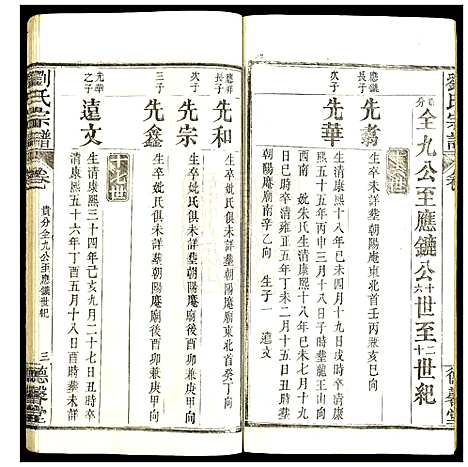 劉氏宗譜 卷
貴分全九公至應鏈公十六世至二十世紀
十六世
應鏈長子
先翥
生清康熙十八年己未十月十九日戌時卒清康
熙五十五年丙申三月十八日時葬朝陽庵東北首壬丙兼亥巳向
應鏈次子
先華
生清康熙二十
日巳時卒清雍正五年丁未二月初五日時葬龍王山向
西南 妣朱氏生清康熙十八年己未
朝陽庵廟南辛乙向 生子一 遠文
應祥長子
先和
生卒妣氏俱未詳葬朝陽庵東北首癸丁向
次子
先宗
生卒妣氏俱未詳葬朝陽庵廟後酉卯兼庚甲向
三子
先鑫
生卒妣氏俱未詳葬朝陽庵廟後酉卯兼庚甲向
十七世
先華之子
遠文
生清康熙三十四年己亥九月二十七日丑時卒
清康熙五十六年丁酉五月十八日酉時葬未詳
劉氏宗譜 卷一
貴分全九公至應鏈世紀
三
德馨堂